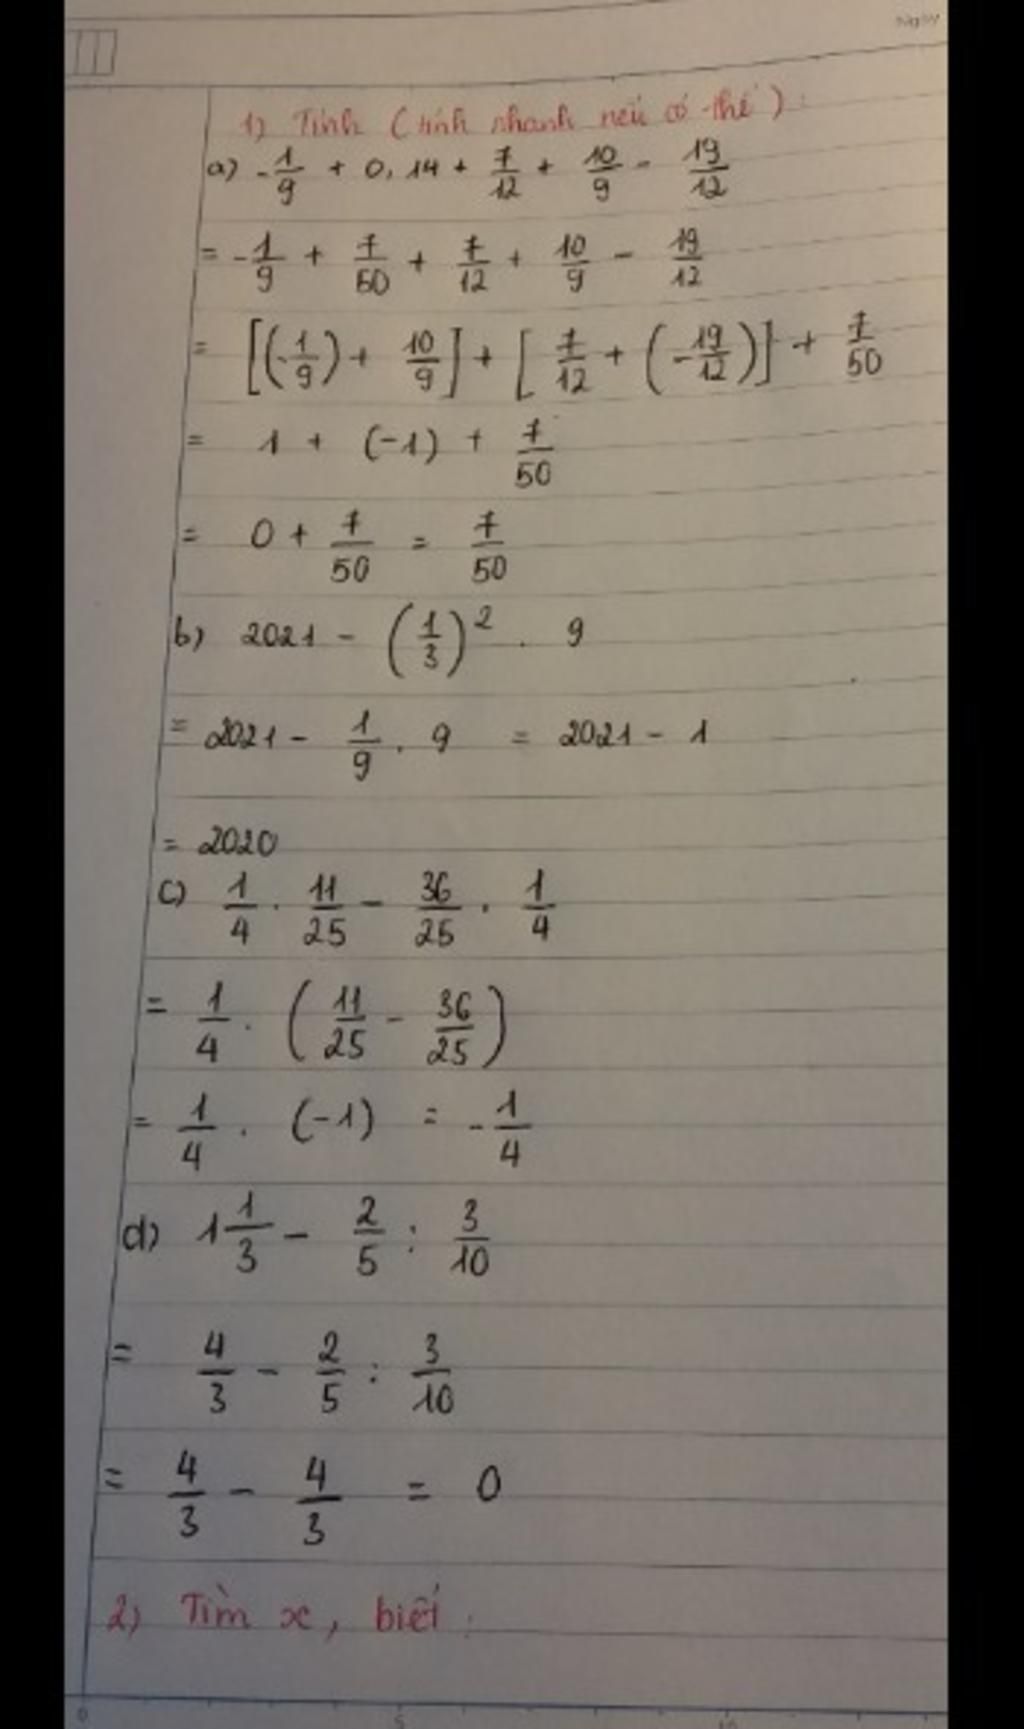 Ngày
1) Tính (tính nhanh nếu có thể):
a) -1/9 + 0,14 + 7/12 + 10/9 - 19/12
= -1/9 + 7/50 + 7/12 + 10/9 - 19/12
= [(-1/9) + 10/9] + [7/12 + (-19/12)] + 7/50
= 1 + (-1) + 7/50
= 0 + 7/50 = 7/50
b) 2021 - (1/3)² . 9
= 2021 - 1/9 . 9 = 2021 - 1
= 2020
c) 1/4 . 11/25 - 36/25 . 1/4
= 1/4 . (11/25 - 36/25)
= 1/4 . (-1) = -1/4
d) 1 1/3 - 2/5 : 3/10
= 4/3 - 2/5 : 3/10
= 4/3 - 4/3 = 0
2) Tìm x, biết:
0 5 10